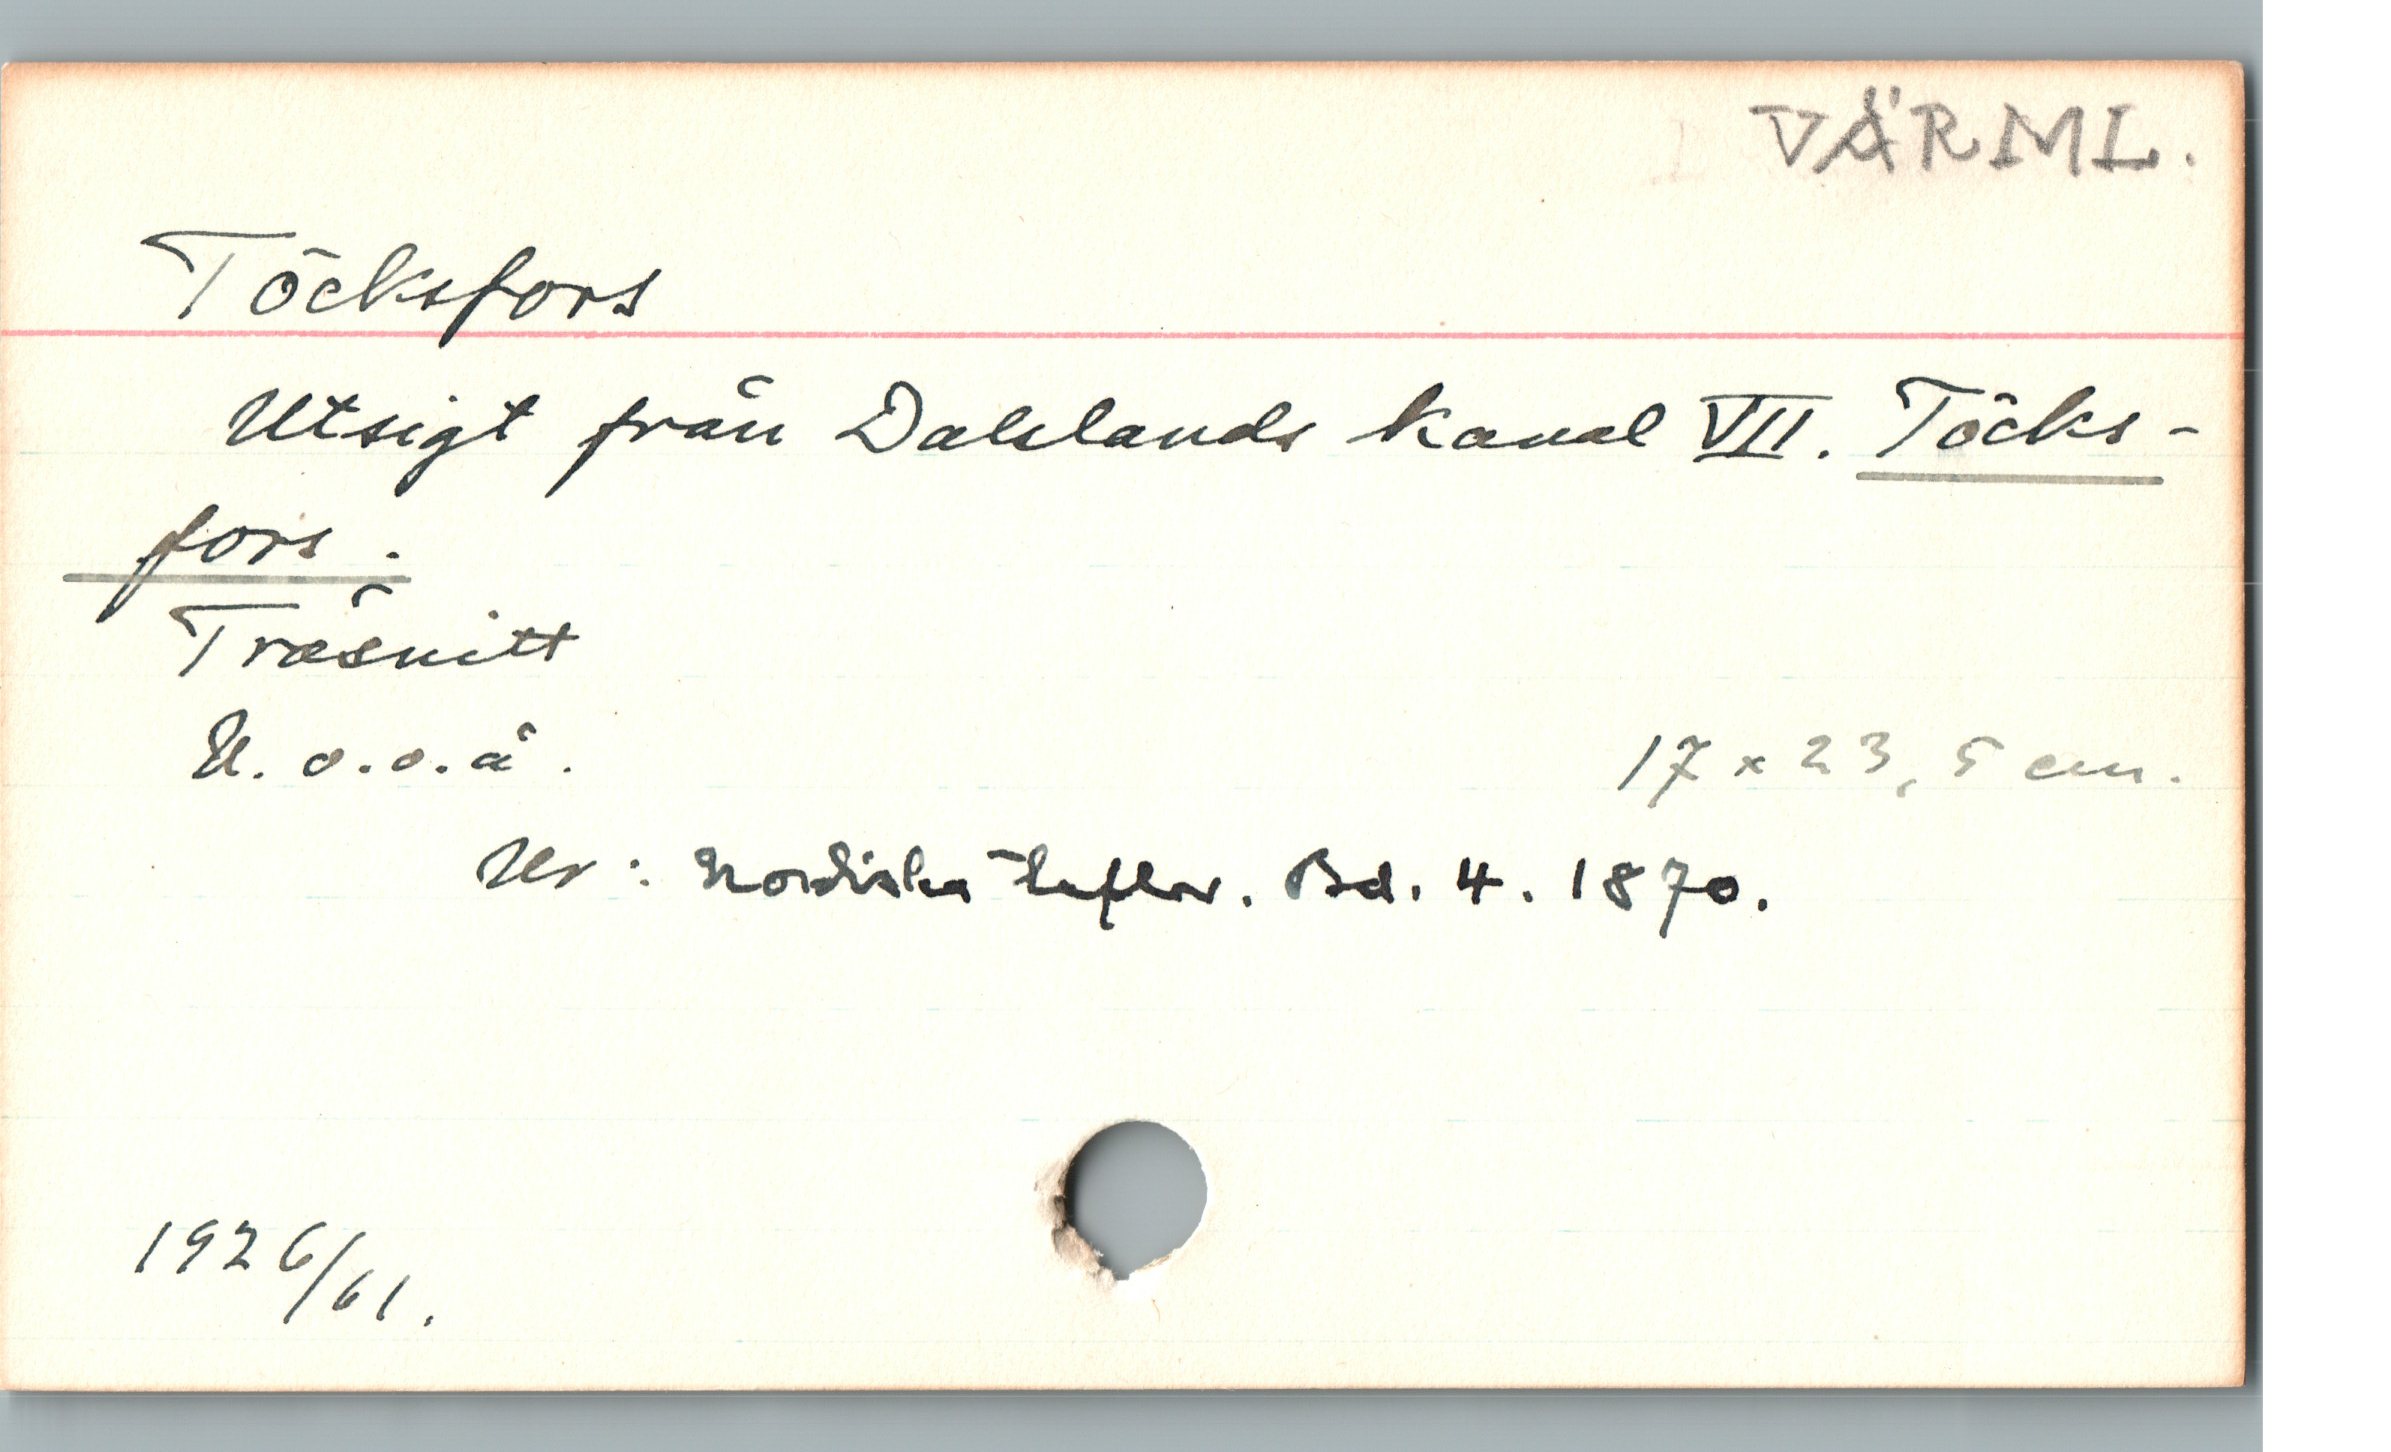 VÄRML.
Töcksfors
Utsigt från Dalslands kanal VII. Töcks-
fors.
Träsnitt
U. o. o. å.
17 x 23,5 cm.
Ur: Nordiska taflor. Bd. 4. 1870.
1926/61.